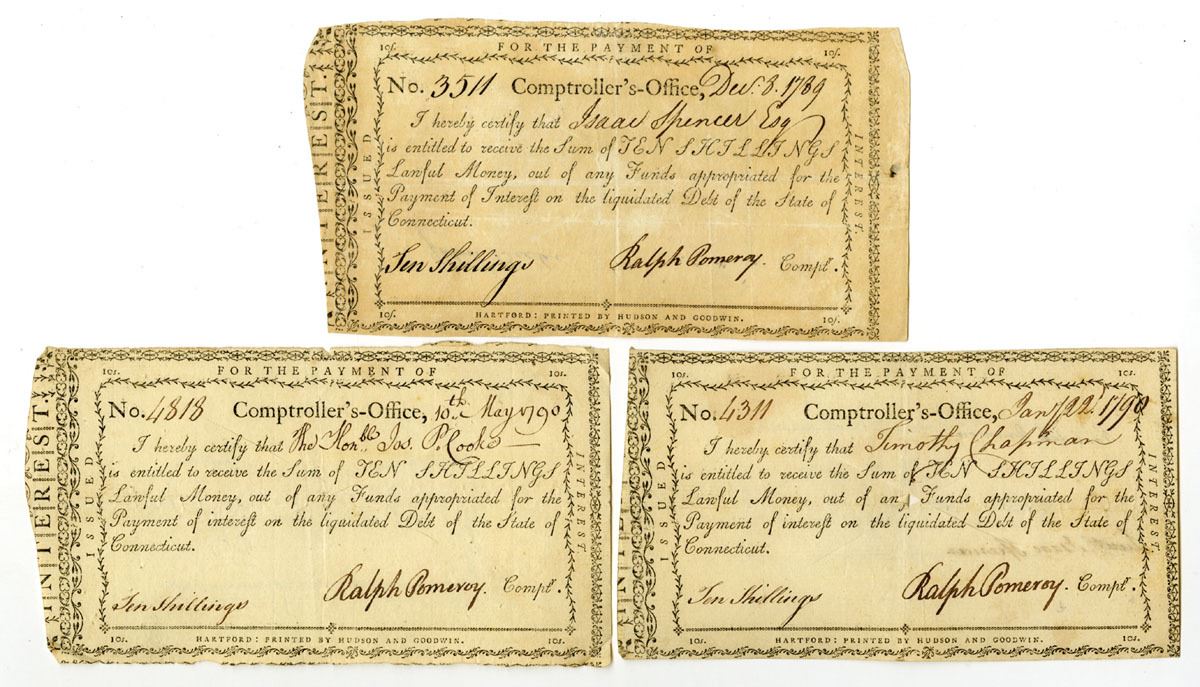 10s. FOR THE PAYMENT OF 10s.
INTEREST.
ISSUED
INTEREST.
No. 3511 Comptroller's-Office, Dec. 8. 1789
I hereby certify that Isaac Spencer Esq
is entitled to receive the Sum of TEN SHILLINGS
Lawful Money, out of any Funds appropriated for the
Payment of Interest on the liquidated Debt of the State of
Connecticut.
Ten Shillings Ralph Pomeroy. Compt.r
10s. HARTFORD: PRINTED BY HUDSON AND GOODWIN. 10s.
10s. FOR THE PAYMENT OF 10s.
INTEREST
ISSUED
INTEREST.
No. 4818 Comptroller's-Office, 10th May 1790
I hereby certify that The Honble Jos. P. Cooke
is entitled to receive the Sum of TEN SHILLINGS
Lawful Money, out of any Funds appropriated for the
Payment of interest on the liquidated Debt of the State of
Connecticut.
Ten Shillings Ralph Pomeroy. Compt.r
10s. HARTFORD: PRINTED BY HUDSON AND GOODWIN. 10s.
10s. FOR THE PAYMENT OF 10s.
INTE
ISSUED
INTEREST.
No. 4311 Comptroller's-Office, Jany 22d 1790
I hereby certify that Timothy Chapman
is entitled to receive the Sum of TEN SHILLINGS
Lawful Money, out of any Funds appropriated for the
Payment of interest on the liquidated Debt of the State of
Connecticut.
Ten Shillings Ralph Pomeroy. Compt.r
10s. HARTFORD: PRINTED BY HUDSON AND GOODWIN. 10s.